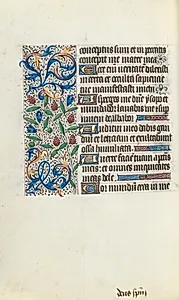 conceptus sum et in peccatis
concepit me mater mea
Ecce enim veritatem dilexisti
incerta et occulta sapientie
tue manifestasti michi
Asperges me dne ysopo et
mundabor lavabis me et sup
nivem dealbabor
Auditui meo dabis gau
dium et leticiam et exultabunt
ossa humiliata
Averte faciem tuam a pctis
meis et omnes iniquitates
meas dele
Cor mundum crea in me
deus spm